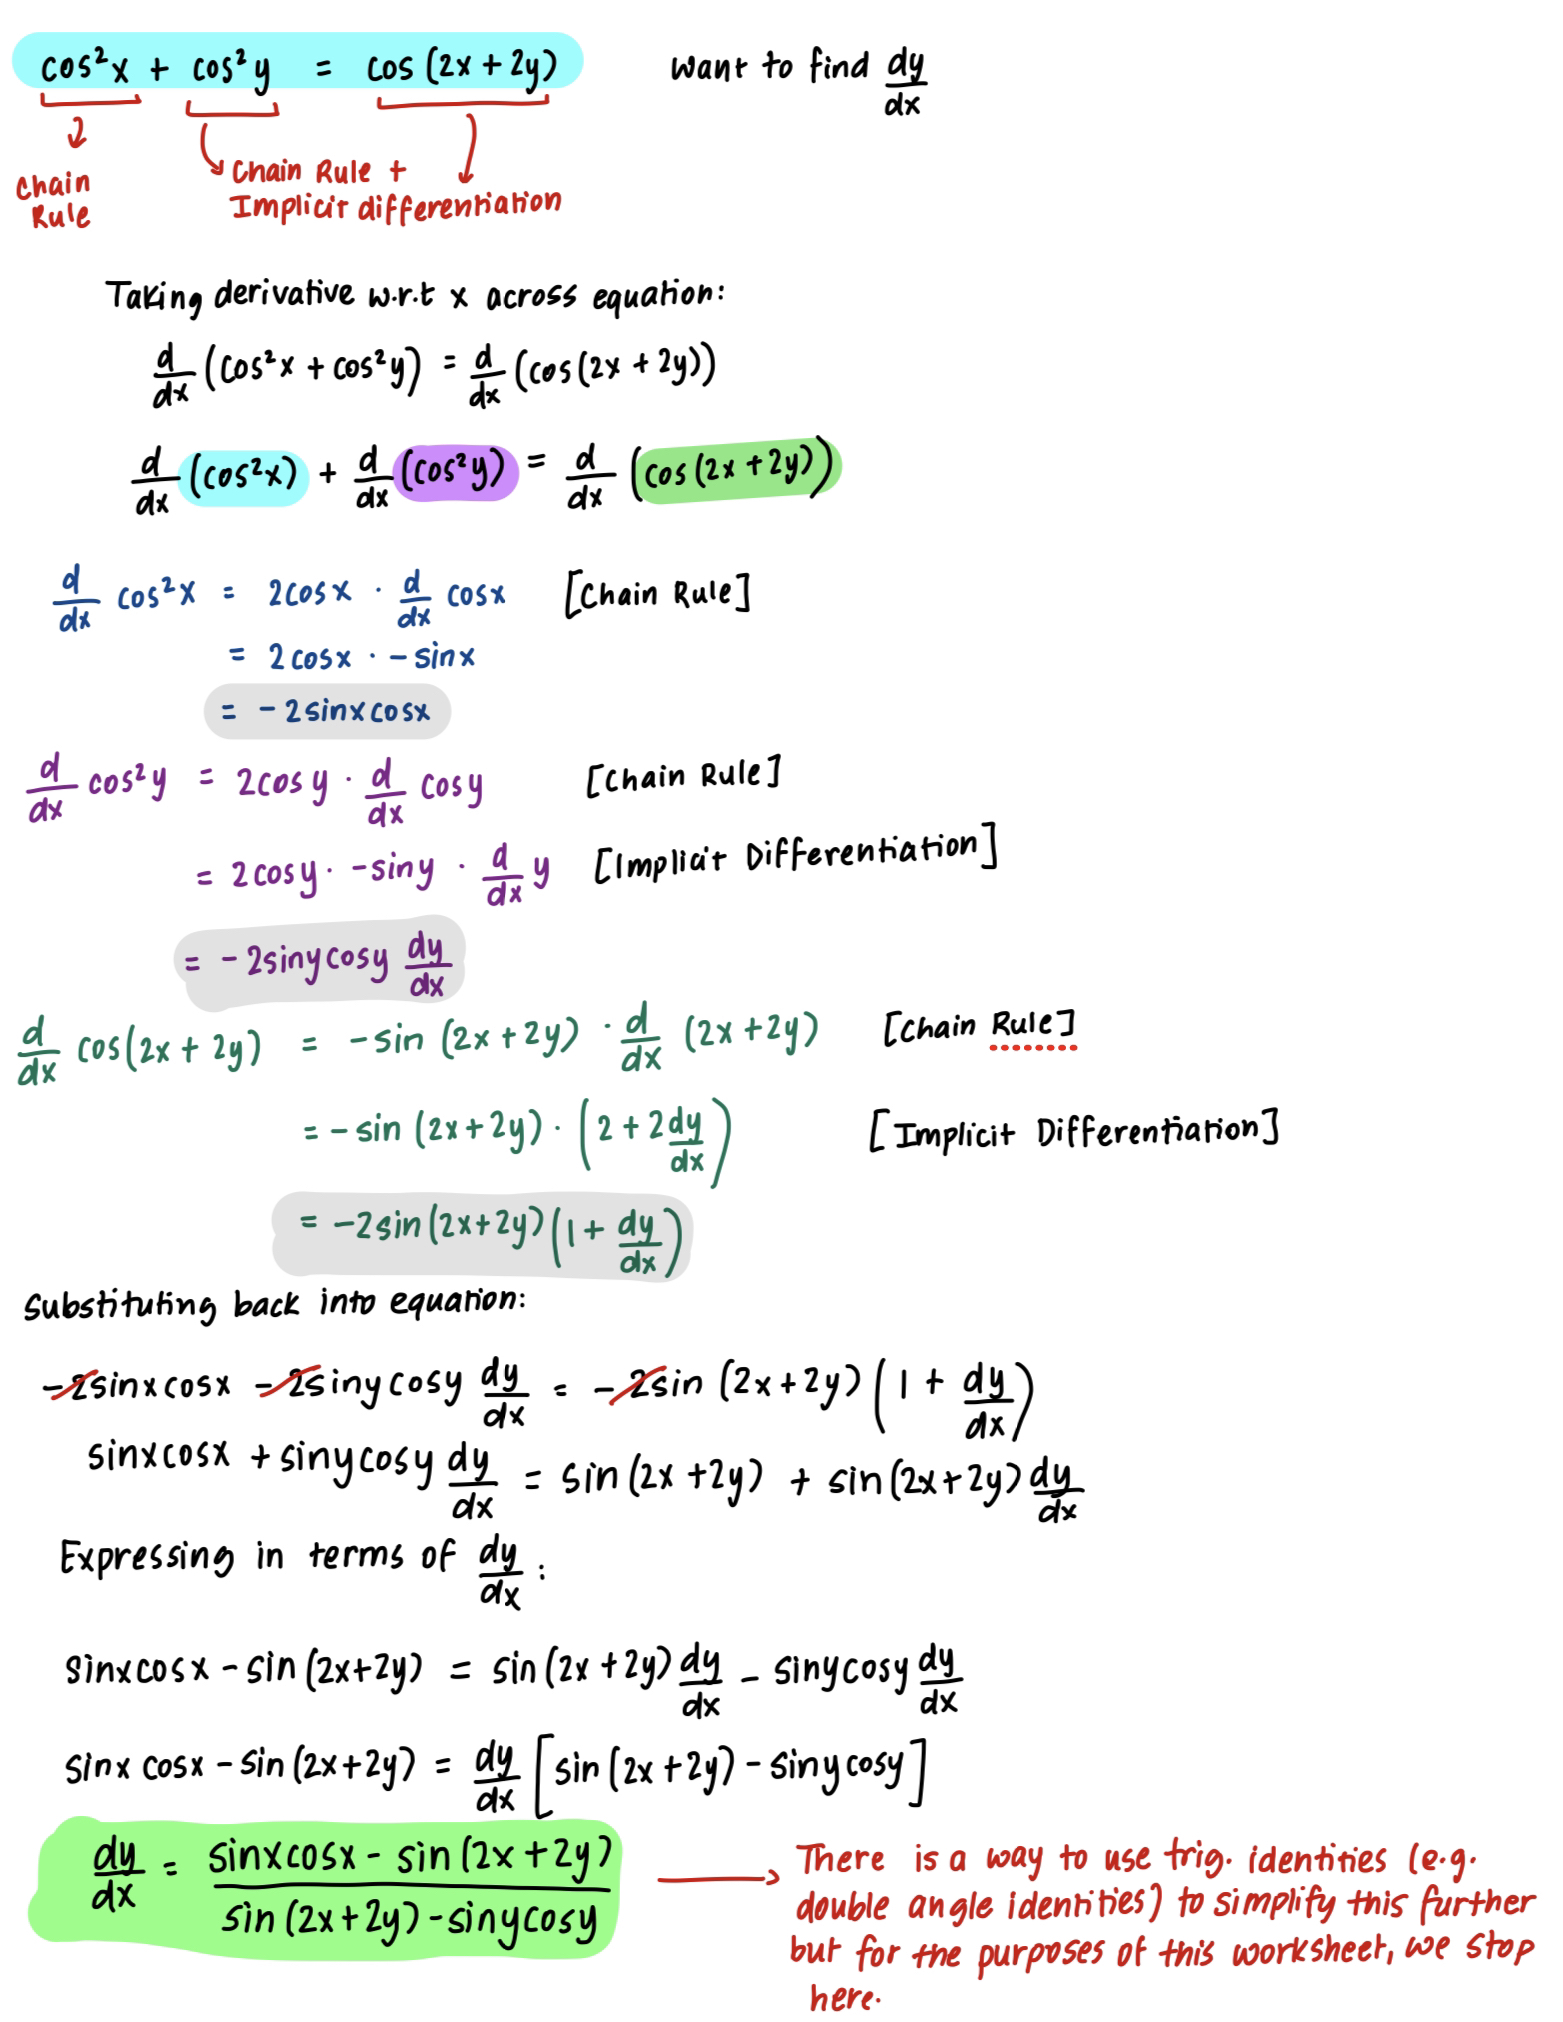 cos²x + cos²y = cos(2x + 2y) want to find dy/dx
Chain Rule
Chain Rule + Implicit differentiation
Taking derivative w.r.t x across equation:
d/dx (cos²x + cos²y) = d/dx (cos(2x + 2y))
d/dx (cos²x) + d/dx (cos²y) = d/dx (cos(2x + 2y))
d/dx cos²x = 2cosx · d/dx cosx [Chain Rule]
= 2cosx · -sinx
= -2sinxcosx
d/dx cos²y = 2cosy · d/dx cosy [Chain Rule]
= 2cosy · -siny · d/dx y [Implicit Differentiation]
= -2sinycosy dy/dx
d/dx cos(2x + 2y) = -sin(2x + 2y) · d/dx (2x + 2y) [Chain Rule]
= -sin(2x + 2y) · (2 + 2dy/dx) [Implicit Differentiation]
= -2sin(2x+2y)(1 + dy/dx)
Substituting back into equation:
-2sinxcosx - 2sinycosy dy/dx = -2sin(2x+2y)(1 + dy/dx)
sinxcosx + sinycosy dy/dx = sin(2x+2y) + sin(2x+2y) dy/dx
Expressing in terms of dy/dx:
sinxcosx - sin(2x+2y) = sin(2x+2y) dy/dx - sinycosy dy/dx
sinx cosx - sin(2x+2y) = dy/dx [sin(2x+2y) - sinycosy]
dy/dx = sinxcosx - sin(2x+2y) / sin(2x+2y) - sinycosy
There is a way to use trig. identities (e.g.
double angle identities) to simplify this further
but for the purposes of this worksheet, we stop
here.